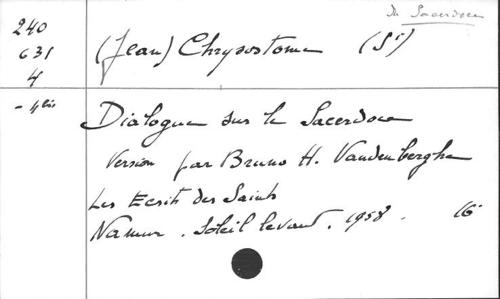 du Sacerdoce
240
631
4
- 4bis
(Jean) Chrysostome (St)
Dialogue sur le Sacerdoce
Version par Bruno H. Vandenberghe
Les Ecrits des Saints
Namur. Soleil levant. 1958. 16°